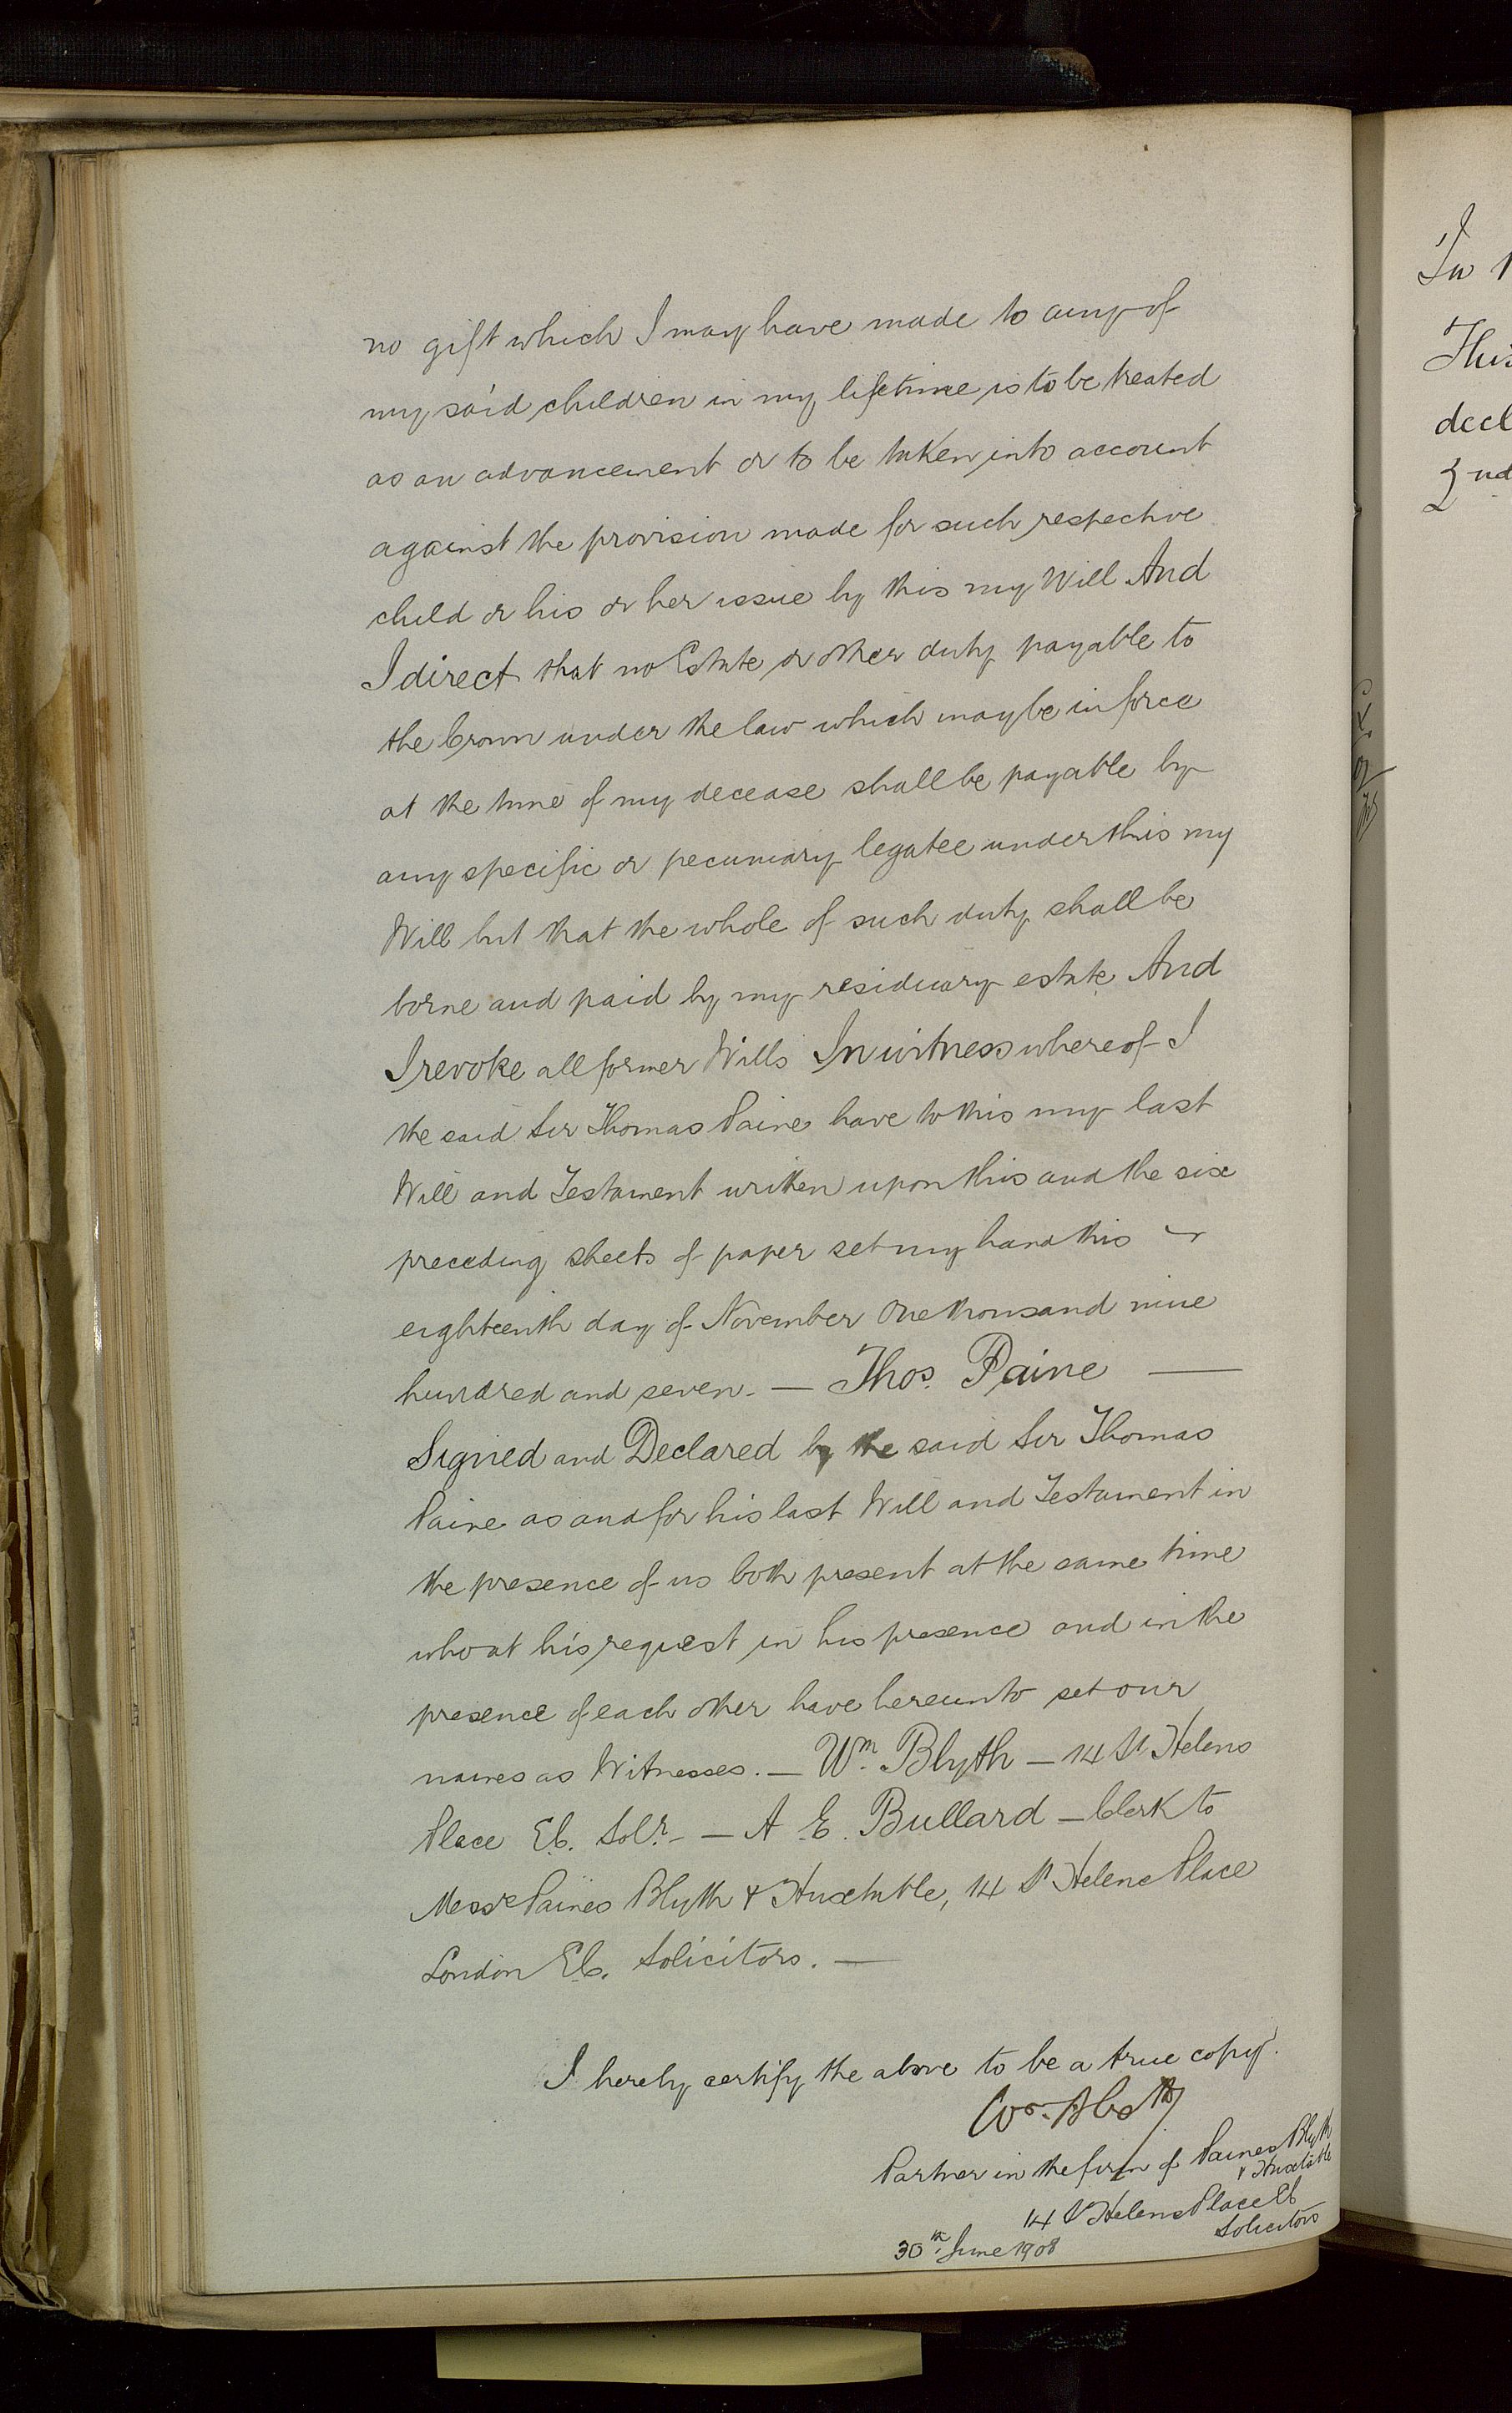 no gift which I may have made to any of
my said children in my lifetime is to be treated
as an advancement or to be taken into account
against the provision made for such respective
child or his or her issue by this my Will And
I direct that no Estate or other duty payable to
the Crown under the law which may be in force
at the time of my decease shall be payable by
any specific or pecuniary legatee under this my
Will but that the whole of such duty shall be
borne and paid by my residuary estate And
I revoke all former Wills In witness whereof I
the said Sir Thomas Paine have to this my last
Will and Testament written upon this and the six
preceding sheets of paper set my hand this
eighteenth day of November One thousand nine
hundred and seven. — Thos. Paine —
Signed and Declared by the said Sir Thomas
Paine as and for his last Will and Testament in
the presence of us both present at the same time
who at his request in his presence and in the
presence of each other have hereunto set our
names as Witnesses. — Wm. Blyth — 14 St Helens
Place EC. Solr. — A. E. Bullard — Clerk to
Messrs Paines Blyth & Huxtable, 14 St Helens Place
London EC. Solicitors. —
I hereby certify the above to be a true copy.
Wm. Blyth
Partner in the firm of Paines Blyth
& Huxtable
14 St Helens Place EC
Solicitors
30th June 1908
In
This
decl
2nd